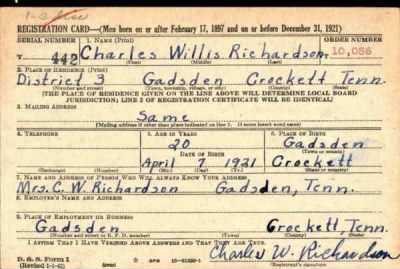 REGISTRATION CARD—(Men born on or after February 17, 1897 and on or before December 31, 1921)
SERIAL NUMBER 1. NAME (Print) ORDER NUMBER
442 Charles Willis Richardson 10,086
(First) (Middle) (Last)
2. PLACE OF RESIDENCE (Print)
District 3 Gadsden Crockett Tenn.
(Number and street) (Town, township, village, or city) (County) (State)
[THE PLACE OF RESIDENCE GIVEN ON THE LINE ABOVE WILL DETERMINE LOCAL BOARD
JURISDICTION; LINE 2 OF REGISTRATION CERTIFICATE WILL BE IDENTICAL]
3. MAILING ADDRESS
Same
[Mailing address if other than place indicated on line 2. If same insert word same]
4. TELEPHONE 5. AGE IN YEARS 6. PLACE OF BIRTH
20 Gadsden
DATE OF BIRTH (Town or county)
April 7 1921 Crockett
(Exchange) (Number) (Mo.) (Day) (Yr.) (State or country)
7. NAME AND ADDRESS OF PERSON WHO WILL ALWAYS KNOW YOUR ADDRESS
Mrs. C. W. Richardson Gadsden, Tenn.
8. EMPLOYER'S NAME AND ADDRESS
9. PLACE OF EMPLOYMENT OR BUSINESS
Gadsden Crockett, Tenn.
(Number and street or R. F. D. number) (Town) (County) (State)
I AFFIRM THAT I HAVE VERIFIED ABOVE ANSWERS AND THAT THEY ARE TRUE.
D. S. S. Form 1
(Revised 1-1-42) GPO Charles W. Richardson
(Registrant's signature)